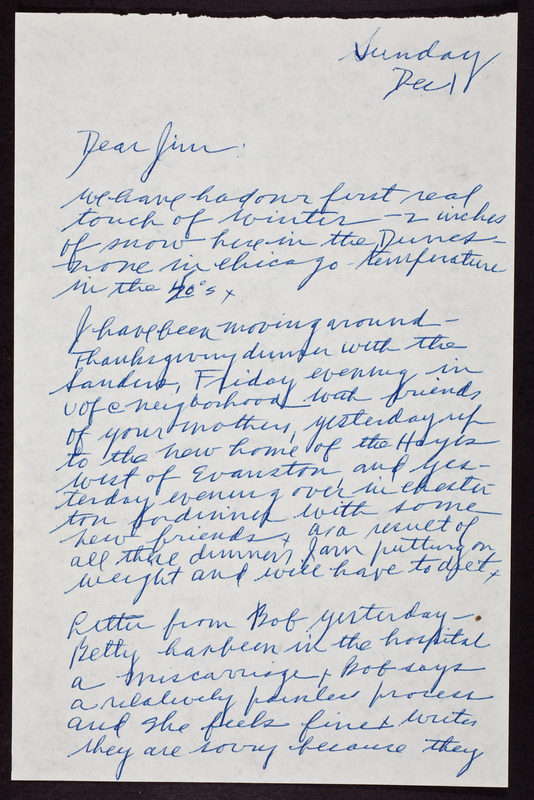 Sunday
Dec 1
Dear Jim:
We have had our first real
touch of winter - 2 inches
of snow here in the Dunes -
none in Chicago - temperature
in the 20°s x
I have been moving around -
Thanksgiving dinner with the
Sanders, Friday evening in
U of C neigborhood with friends
of your mothers, yesterday up
to the new home of the Hayes
west of Evanston, and yes-
terday evening over in Chester
ton for dinner with some
new friends x as a result of
all these dinners I am putting on
weight and will have to diet x
Letter from Bob yesterday -
Betty has been in the hospital
a miscarriage x Bob says
a relatively painless process
and she feels fine x writes
they are sorry because they